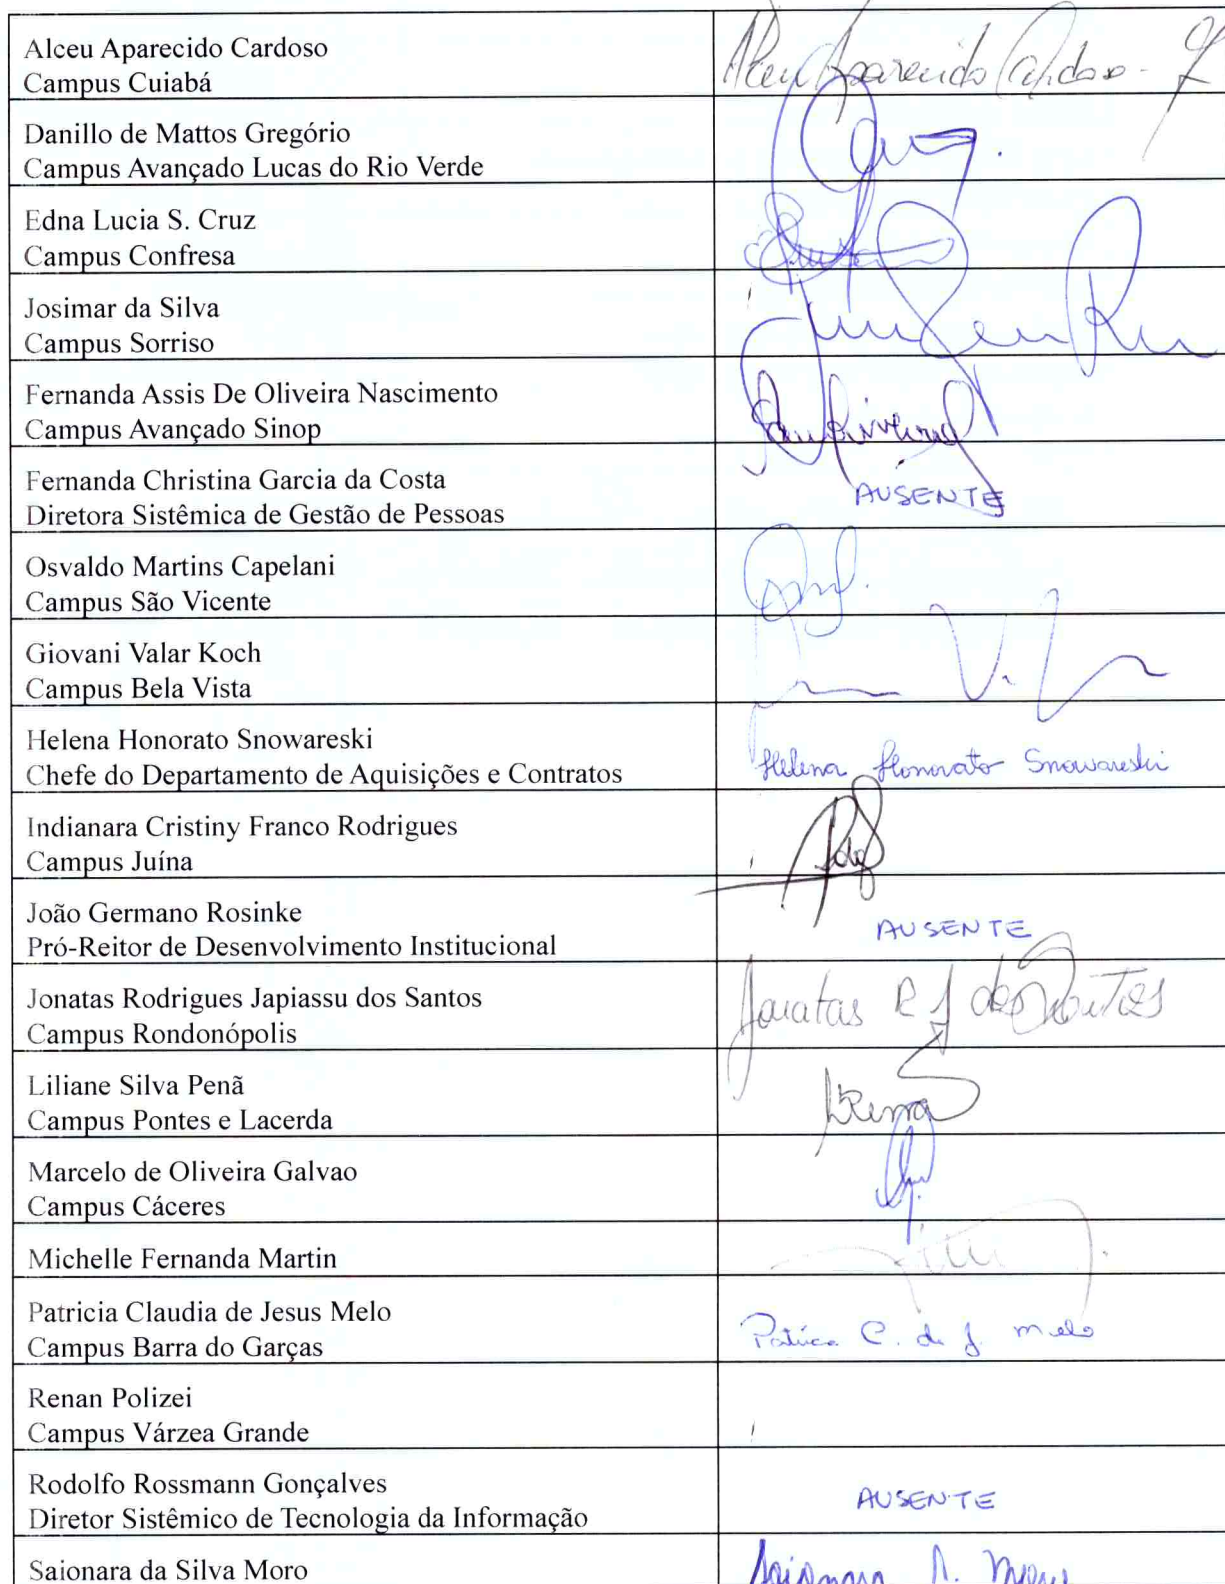 Alceu Aparecido Cardoso
Campus Cuiabá
Alceu Aparecido Cardoso -
Danillo de Mattos Gregório
Campus Avançado Lucas do Rio Verde
Edna Lucia S. Cruz
Campus Confresa
Josimar da Silva
Campus Sorriso
Fernanda Assis De Oliveira Nascimento
Campus Avançado Sinop
Fernanda Christina Garcia da Costa
Diretora Sistêmica de Gestão de Pessoas
AUSENTE
Osvaldo Martins Capelani
Campus São Vicente
Giovani Valar Koch
Campus Bela Vista
Helena Honorato Snowareski
Chefe do Departamento de Aquisições e Contratos
Helena Honorato Snowareski
Indianara Cristiny Franco Rodrigues
Campus Juína
João Germano Rosinke
Pró-Reitor de Desenvolvimento Institucional
AUSENTE
Jonatas Rodrigues Japiassu dos Santos
Campus Rondonópolis
Jonatas R J dos Santos
Liliane Silva Penã
Campus Pontes e Lacerda
Marcelo de Oliveira Galvao
Campus Cáceres
Michelle Fernanda Martin
Patricia Claudia de Jesus Melo
Campus Barra do Garças
Patrícia C. de J. Melo
Renan Polizei
Campus Várzea Grande
Rodolfo Rossmann Gonçalves
Diretor Sistêmico de Tecnologia da Informação
AUSENTE
Saionara da Silva Moro
Saionara S. Moro